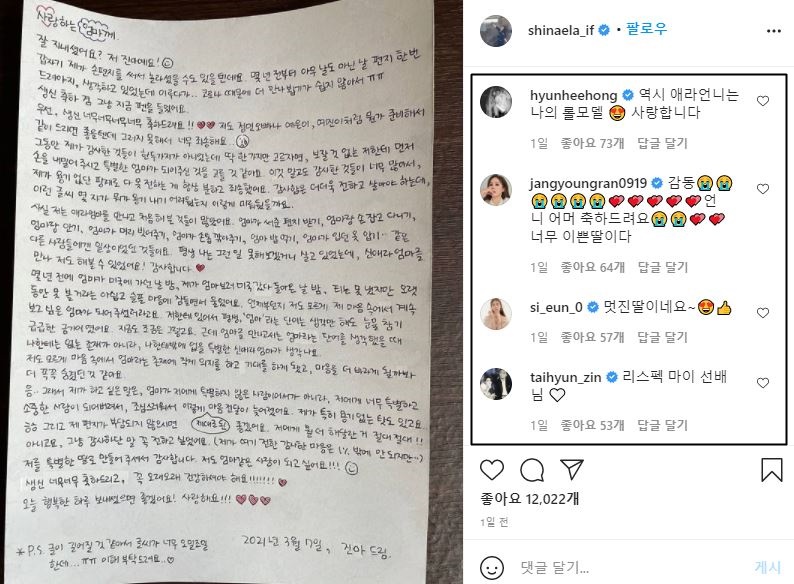 사랑하는 엄마께
잘 지내셨어요? 저 진아예요! ☺
갑자기 제가 손편지를 써서 놀라셨을 수도 있을텐데요. 몇 년 전부터 아무 날도 아닌 날 편지 한번
드려야지, 생각하고 있었는데 이루다가.. 코로나 때문에 더 만나 뵙기가 쉽지 않아서 ㅠㅠ
생신 축하 겸 그냥 지금 펜을 들었어요.
우선, 생신 너무너무너무너무 축하드려요!! ♥♥ 저도 정민오빠나 예은이, 예진이처럼 뭔가 준비해서
같이 드리면 좋을텐데 그러지 못해서 너무 죄송해요..
그동안 제가 감사한 것들이 한두가지가 아니었는데 딱 한가지만 고르자면, 보잘 것 없는 저한테 먼저
손을 내밀어주시고 특별한 엄마가 되어주신 것을 고를 것 같아요. 이것 말고도 감사한 것들이 너무 많아서,
제가 용기 없단 핑계로 다 못 전하는 게 항상 부끄럽고 죄송했어요. 감사함은 더더욱 전하고 살아야 하는데,
이런 글씨 몇 자가 뭐가 용기 내기 어려웠는지 이렇게 미뤄뒀을까요.
사실 저는 애라엄마를 만나고 처음 해 본 것들이 많았어요. 엄마가 써준 편지 받기, 엄마랑 손잡고 다니기,
엄마랑 안기, 엄마가 머리 빗어주기, 엄마가 손톱 깎아주기, 엄마 밥 먹기, 엄마가 입던 옷 입기.. 같은
다른 사람들에겐 일상이었던 것들이요. 평생 나는 그런 일 못해보겠거니 살고 있었는데, 신애라 엄마를
만나 저도 해볼 수 있었어요! 감사합니다 ♥
몇 년 전에 엄마가 미국에 가신 날 밤, 제가 엄마보러 미국 갔다 돌아온 날 밤, 티는 못 냈지만 오랫
동안 못 볼 거라는 아쉽고 슬픈 마음에 잠들면서 울었어요. 언제부턴지 저도 모르게 제 마음 속에서 계속
보고 싶은 엄마가 되어주셨더라구요. 저한테 있어서 평생, '엄마'라는 단어는 생각만 해도 눈물 참기
급급한 금기어였어요. 지금도 조금은 그렇고요. 근데 엄마를 만나고서는 엄마라는 단어를 생각했을 때
나한테는 없는 존재가 아니라, 나한테밖에 없을 특별한 신애라 엄마가 생각나요.
저도 모르게 마음 속에서 엄마라는 존재에 작게 의지를 하고 기대를 하게 됐고, 마음을 더 바라게 될까봐
더 꼭꼭 숨겼던 것 같아요.
음.. 그래서 제가 하고 싶은 말은, 엄마가 저에게 특별하지 않은 사람이어서가 아니라, 저에게 너무 특별하고
소중한 사람이 되어버려서, 조심스러워서 이렇게 마음 전달이 늦어졌어요. 제가 특히 용기 없는 탓도 있고요..
금슴 그리고 제 편지가 부담되지 않으셨으면 (제대로된) 좋겠어요. 저에게 뭘 더 해달란 거 절대 절대!!
아니고요, 그냥 감사하단 말 꼭 전하고 싶었어요. (제가 여기 전한 감사한 마음은 1% 밖에 안 되지만..)
저를 특별한 딸로 만들어 주셔서 감사합니다. 저도 엄마같은 사람이 되고 싶어요!!! ☺
생신 너무너무 축하드리고, 꼭 오래오래 건강하셔야 해요!!!!!!! ♥
오늘 행복한 하루 보내셨으면 좋겠어요! 사랑해요!!! ♥♥♥
2021년 3월 17일, 진아 드림.
* P.S. 글이 길어질 것 같아서 글씨가 너무 오밀조밀
한데...ㅠㅠ 이해 부탁드려요..♡
shinaela_if • 팔로우
hyunheehong 역시 애라언니는
나의 롤모델 😍 사랑합니다
1일 좋아요 73개 답글 달기
jangyoungran0919 감동😭😭
😭😭😭😭💕💕💕💕💕언
니 어머 축하드려요😭😭💕💕
너무 이쁜딸이다
1일 좋아요 64개 답글 달기
si_eun_0 멋진딸이네요~😍👍
1일 좋아요 57개 답글 달기
taihyun_zin 리스펙 마이 선배
님♡
1일 좋아요 53개 답글 달기
좋아요 12,022개
1일 전
댓글 달기...
게시